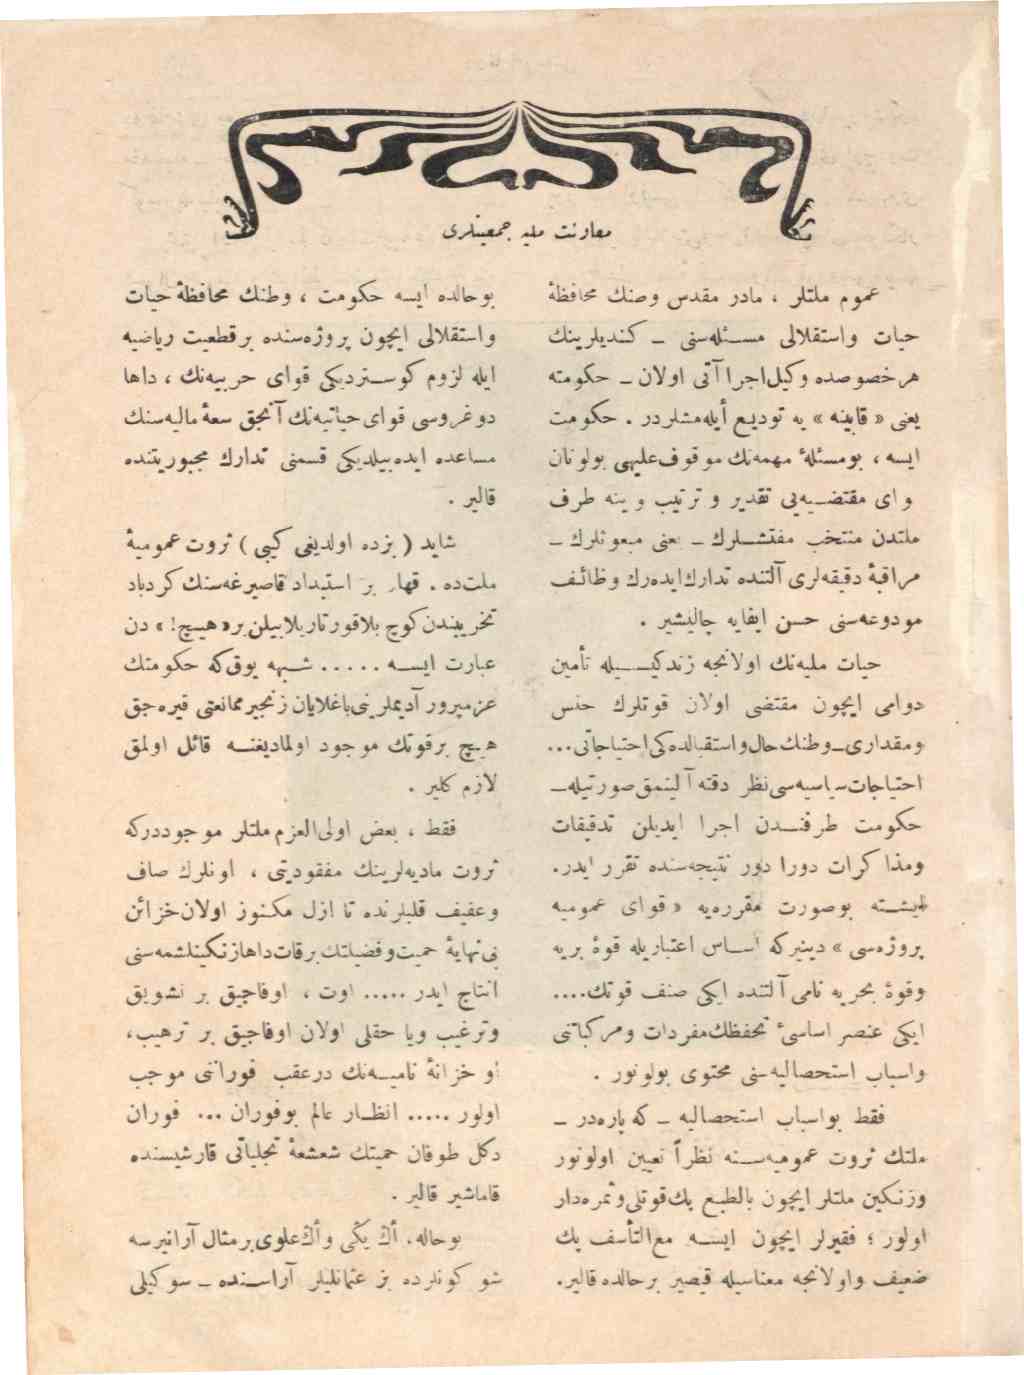 معاونت ملیه جمعیتلری
عموم ملتلر ، مادر مقدس وطنك محافظهٔ
حیات واستقلالی مسـئله‌سنی ـ كندیلرینك
هر خصوصده وكیل‌اجرا آتی اولان ـ حكومته
یعنی « قابینه » یه تودیـع أیله‌مشلردر . حكومت
ایسه ، بومسئلهٔ مهمه‌نك موقوف‌علیهی بولونان
قوای مقتضـیه‌یی تقدیر و ترتیب و ینه طرف
ملتدن منتخب مفتشـلرك ـ یعنی مبعوثلرك ـ
مراقبهٔ دقیقه‌لری آلتنده تدارك‌ایده‌رك وظائـف
مودوعه‌سنی حسن ایفایه چالیشیر .
حیات ملیه‌نك اولانجه زندكیـسیله تأمین
دوامی ایچون مقتضی اولان قوتلرك جنس
ومقداری ـ وطنك‌حال‌واستقبالده‌كی احتیاجاتی...
احتیاجات‌سیاسیه‌سی‌نظر دقته آلینمق‌صورتیله ـ
حكومت طرفنـدن اجرا ایدیلن تدقیقات
ومذاكرات دورا دور نتیجه‌سنده تقرر ایدر.
ایشـته بوصورت مقرره‌یه « قوای عمومیه
پروژه‌سی » دینیركه اسـاس اعتباریله قوهٔ بریه
وقوهٔ بحریه نامی آلتنده ایكی صنف قوتك....
ایكی عنصر اساسیٔ تحفظك‌مفردات ومركباتنی
واسباب استحصالیه‌سنی محتوی بولونور .
فقط بواسباب استحصالیه ـ كه پاره‌در ـ
ملتك ثروت عمومیه‌سـنه نظراً تعیین اولونور
وزنكین ملتلر ایچون بالطبـع پك‌قوتلی‌وثمره‌دار
اولور ؛ فقیرلر ایچون ایسـه مع‌التأسف پك
ضعیف واولانجه معناسیله قیصیر برحالده قالیر.
بوحالده ایسه حكومت ، وطنك محافظهٔ حیات
واستقلالی ایچون پروژه‌سنده برقطعیت ریاضیه
ایله لزوم كوسـتردیكی قوای حربیه‌نك ، داها
دوغروسی قوای‌حیاتیه‌نك آنجق سعهٔ مالیه‌سنك
مساعده ایده‌بیلدیكی قسمنی تدارك مجبوریتنده
قالیر .
شاید ( بزده اولدیغی كیبی ) ثروت عمومیهٔ
ملت‌ده . قهار بر استبداد قاصیرغه‌سنك كردباد
تخریبندن كوچ بلاقورتاریلابیلن‌بر« هیـچ! » دن
عبارت ایسـه ..... شـبهه یوق‌كه حكومتك
عزمپرور آدیملرینی‌باغلایان زنجیرممانعتی قیره‌جق
هیـچ برقوتك موجود اولمادیغنـه قائل اولمق
لازم كلیر .
فقط ، بعض اولی‌العزم ملتلر موجوددركه
ثروت مادیه‌لرینك مفقودیتی ، اونلرك صاف
وعفیف قلبلرنده تا ازل مكنوز اولان‌خزائن
بی‌نهایهٔ حمیت‌وفضیلتك‌برقات‌داهازنكینلشمه‌سنی
انتاج ایدر ..... اوت ، اوفاجیق بر تشویق
وترغیب ویا حقلی اولان اوفاجیق بر ترهیب،
او خزانهٔ نامیـه‌نك درعقب فوراننی موجب
اولور ..... انظـار عالم بوفوران ... فوران
دكل طوفان حمیتك شعشعهٔ تجلیاتی قارشیسنده
قاماشیر قالیر .
بوحاله، أك یكی وأك‌علوی‌برمثال آرانیرسه
شو كونلرده بز عثمانلیلر آراسـنده ـ سوكیلی